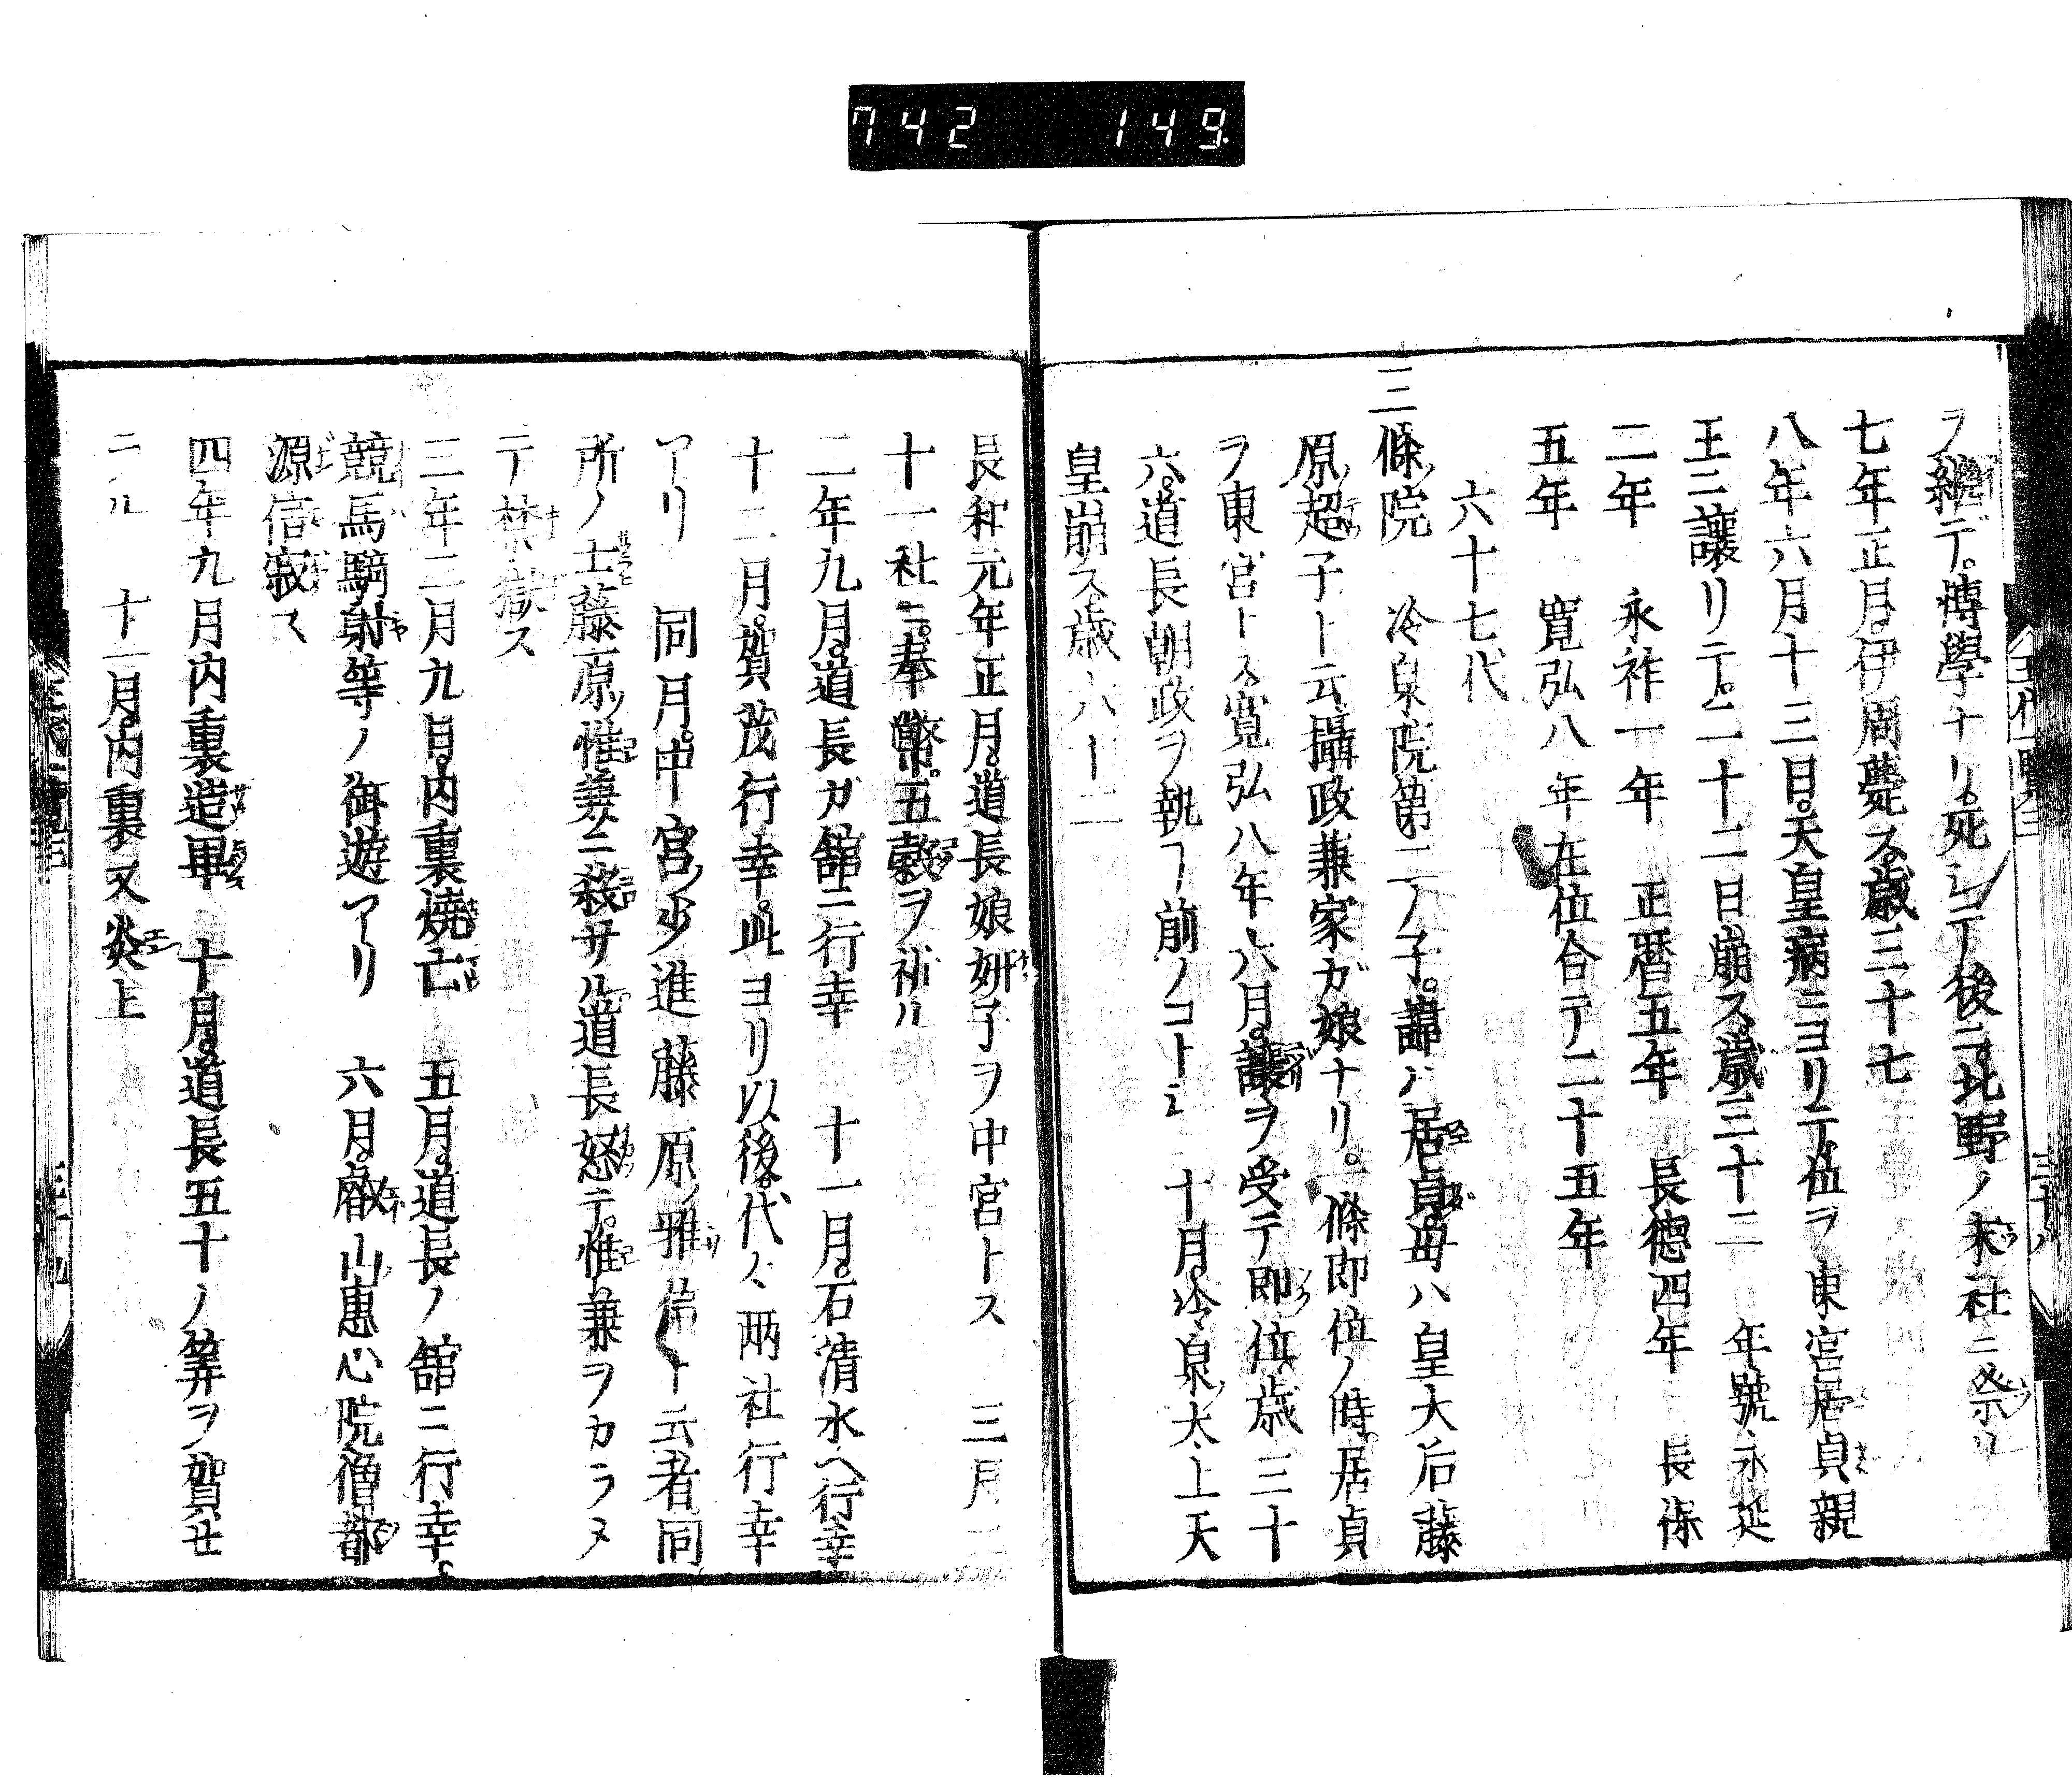 742 149
ヲ繼デ。博學ナリ。死シテ後ニ。北野ノ末社ニ祭ル
七年正月。伊周薨ス。歳三十七
八年六月十三日。天皇病ニヨリテ。位ヲ東宮居貞親
王ニ讓リテ。二十二日崩ス。歳三十二 年號ハ永延
二年 永祚一年 正暦五年 長德四年 長保
五年 寛弘八年在位合テ二十五年
六十七代
三條院 冷泉院第二ノ子。諱ハ居貞。母ハ皇大后藤
原ノ超子ト云。攝政兼家ガ娘ナリ。一條即位ノ時。居貞
ヲ東宮トス。寛弘八年六月。讓ヲ受テ即位。歳三十
六。道長朝政ヲ執ヿ前ノコトシ 十月。冷泉太上天
皇崩ス。歳六十二
長和元年正月。道長娘妍子ヲ中宮トス 三月二
十一社ニ。奉幣。五穀ヲ祈ル
二年九月。道長ガ舘ニ行幸 十一月。石清水ヘ行幸
十二月。賀茂行幸。此ヨリ以後。代々兩社行幸
アリ 同月。中宮ノ少進藤原ノ雅ト云者同
所ノ士藤原ノ惟兼ニ殺サル。道長怒テ。惟兼ヲカラメ
テ禁獄ス
三年二月九日。内裏燒亡 五月。道長ノ舘ニ行幸。
競馬騎射等ノ御遊アリ 六月。叡山惠心院僧都
源信寂ス
四年九月内裏造畢 十月。道長五十ノ筭ヲ賀セ
ラル 十一月。内裏又炎上